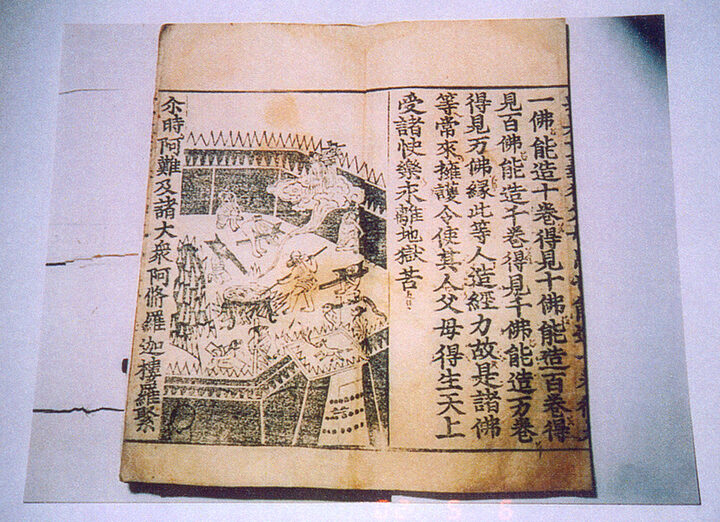 一佛能造十卷得見十佛能造百卷得
見百佛能造千卷得見千佛能造万卷
得見万佛緣此等人造經力故是諸佛
等常來擁護令使其人父母得生天上
受諸快樂永離地獄苦
尒時阿難及諸大衆阿脩羅迦樓羅緊